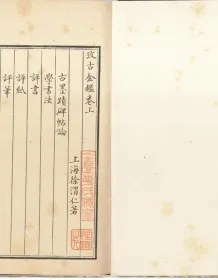 攷古金鑑卷上
上海徐渭仁著
古墨蹟碑帖論
學書法
評書
評紙
評筆